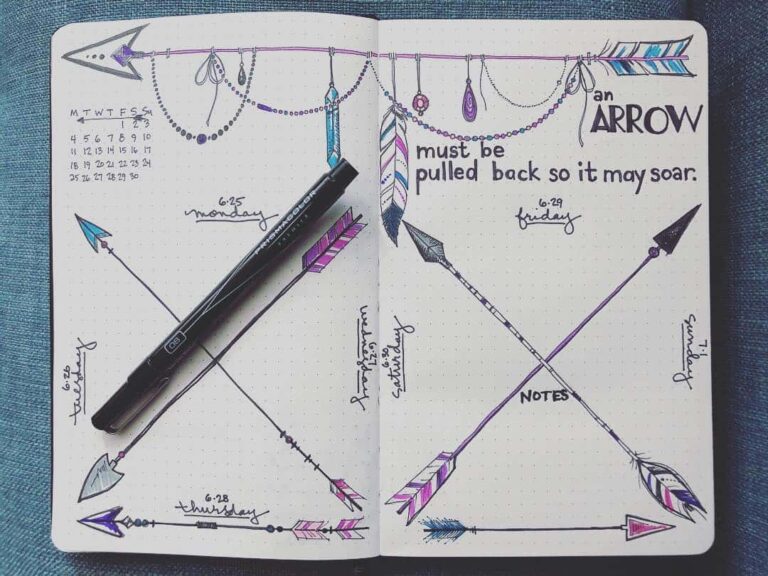 M T W T F S Su
1 2 3
4 5 6 7 8 9 10
11 12 13 14 15 16 17
18 19 20 21 22 23 24
25 26 27 28 29 30
6.25
monday
PRISMACOLOR
PREMIER
08
6.26
tuesday
wednesday
6.27
6.28
thursday
an
ARROW
must be
pulled back so it may soar.
6.29
friday
6.30
saturday
7.1
sunday
NOTES